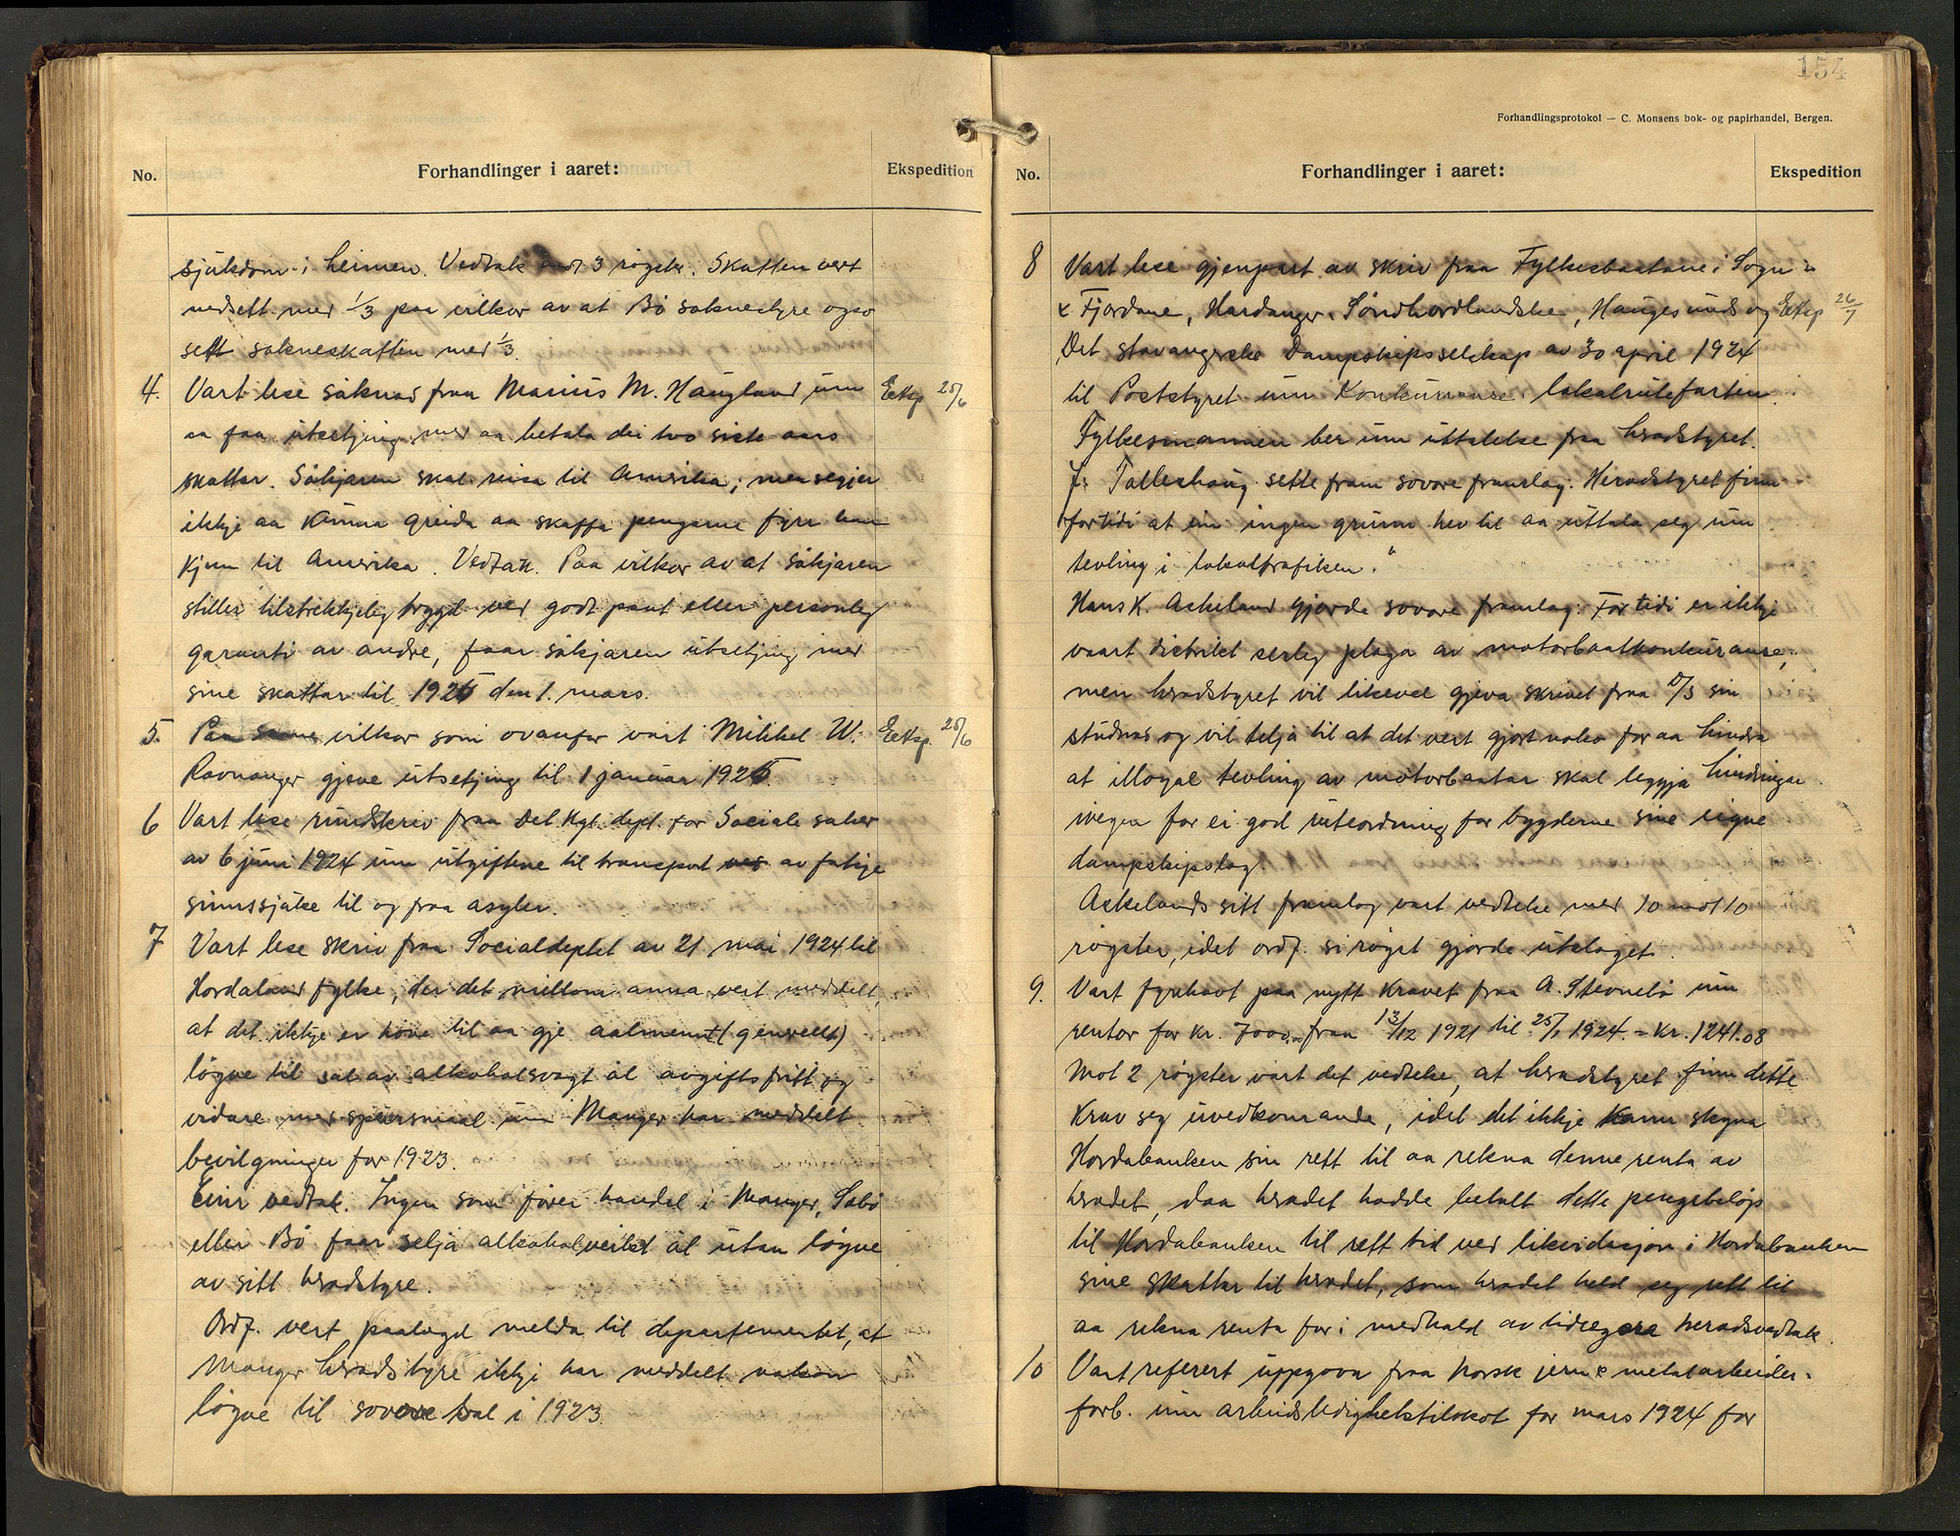 No.
Forhandlinger i aaret:
Ekspedition
sjukdom i heimen. Vedtak mot 3 røyster. Skatten vert
nedsett med 1/3 paa vilkor av at Bø soknestyre ogso
sett sokneskatten med 1/3.
4. Vart lese søknad fraa Marius M. Haugland um Eksp 25/6
aa faa utsetjing med aa betala dei tvo siste aars
skattar. Søkjaren skal reisa til Amerika; men segjer
ikkje aa kunna greida aa skaffa pengarne fyrr han
kjem til Amerika. Vedtak. Paa vilkor av at søkjaren
stiller tilstrekkjeleg trygd ved godt pant eller personleg
garanti av andre, faar søkjaren utsetjing med
sine skattar til 1925 den 1. mars.
5. Paa same vilkor som ovanfor vart Mikkel W. Eksp. 25/6
Ravnanger gjeve utsetjing til 1 januar 1925.
6 Vart lese rundskriv fraa Det Kgl. dept. for Sociale saker
av 6 juni 1924 um utgiftene til transport av fatige
sinnssjuke til og fraa asyler.
7 Vart lese skriv fraa Socialdeptet av 21 mai 1924 til
Hordaland fylke, der det millom anna vert meddelt,
at det ikkje er høve til aa gje aalment (generellt)
løyve til sal av alkoholsvagt øl avgiftsfritt og
vidare med spursmaal um Manger har meddelt
bevilgninger for 1923.
Einr vedtak. Ingen som fører handel i Manger, Sæbø
eller Bø faar selja alkoholveikt øl utan løyve
av sitt hradstyre.
Ordf. vert paalagd melda til departementet, at
Manger hradstyre ikkje har meddelt nokon
løyve til sovore sal i 1923
154
Forhandlingsprotokol — C. Monsens bok- og papirhandel, Bergen.
No.
Forhandlinger i aaret:
Ekspedition
8 Vart lese gjenpart av skriv fraa Fylkesbaatane i Sogn
& Fjordane, Hardanger Søndhordlandske, Haugesunds og Eksp 26/7
Det stavangerske Dampskipsselskap av 30 april 1924
til Poststyret um Konkuranse i lokalrutefarten.
Fylkesmannen ber um uttalelse fraa hradstyret.
J. Tallekhaug sette fram sovore framlag: Heradstyret finn
for tidi at ein ingen grunn hev til aa uttala seg um
tevling i lokaltrafiken."
Hans K. Askeland gjorde sovore framlag: For tidi er ikkje
vaart distrikt serleg plaga av motorbaatkonkuranse,
men hradstyret vil likevel gjeva skrivet fraa sin
studnad og vil telja til at det vert gjort noko for aa hindra
at illoyal tevling av motorbaatar skal leggja hindringar
ivegen for ei god ruteordning for bygderne sine eigne
dampskipslag.
Askelands sitt framlag vart vedteke med 10 mot 10
røyster, idet ordf. si røyst gjorde utslaget.
9. Vart fyrehavt paa nytt kravet fraa A. Stevnebø um
rentor for kr. 7000,00 fraa 13/12 1921 til 25/1 1924. = Kr. 1241.08
Mot 2 røyster vart det vedteke, at hradstyret finn dette
krav seg uvedkomande, idet det ikkje kann skyna
Hordabanken sin rett til aa rekna denne renta av
hradet, daa hradet hadde betalt dette pengebeløp
til Hordabanken til rett tid ved likvidasjon i Hordabanken
sine skattar til hradet, som hradet held seg rett til
aa rekna renta for i medhald av tidlegere heradsvedtak.
10 Vart referert uppgova fraa Norsk jern & metalarbeider-
forb. um arbeidsledighetstilskot for mars 1924 for